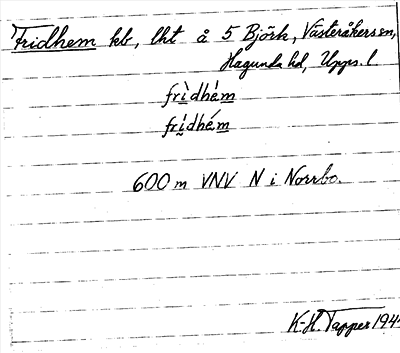 Fridhem kb, lht å 5 Björk, Västeråkers sn,
Hagunda hd, Upps. l
frìdhém
frídhém
600 m VNV N i Norrbo.
K-H. Tapper